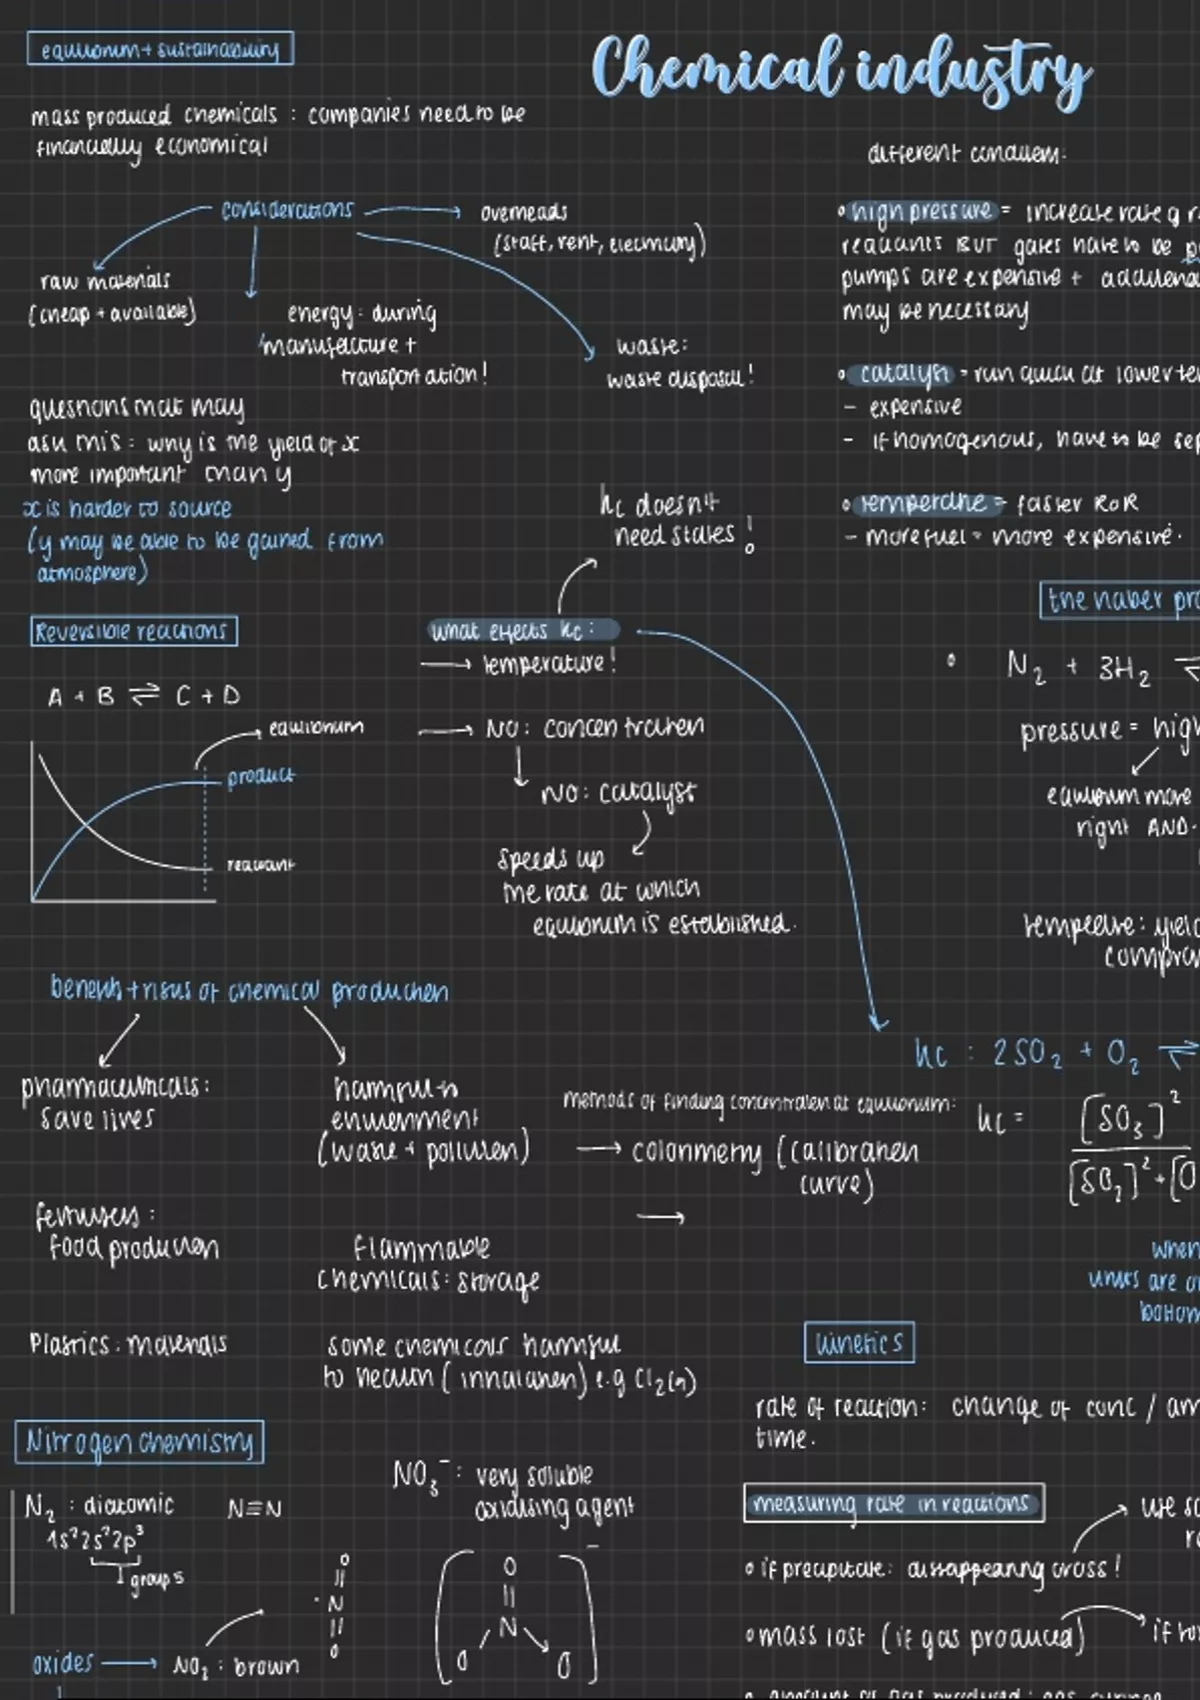 equilibrium + sustainability
Chemical industry
mass produced chemicals : companies need to be
financially economical
considerations
overheads
(staff, rent, electricity)
raw materials
(cheap + available)
energy: during
manufacture +
transportation!
waste:
waste disposal!
questions that may
ask this : why is the yield of x
more important than y
x is harder to source
(y may be able to be gained from
atmosphere)
different conditions:
• high pressure = increase rate of r
reactants BUT gases have to be
pumps are expensive + additional
may be necessary
• catalyst = run quick at lower te
- expensive
- if homogenous, have to be sep
• temperature = faster RoR
- more fuel = more expensive.
kc doesn't
need states!
Reversible reactions
A + B ⇌ C + D
equilibrium
product
reactant
what effects kc:
→ temperature!
→ NO: concentration
NO: catalyst
speeds up
the rate at which
equilibrium is established.
the haber pro
• N₂ + 3H₂ ⇌
pressure = high
equilibrium more
right AND
temperature: yield
compro
benefits + risks of chemical production
pharmaceuticals:
save lives
harmful to
environment
(waste + pollution)
fertilisers:
food production
flammable
chemicals: storage
Plastics: materials
some chemicals harmful
to health (inhalation) e.g Cl₂(g)
kc : 2SO₂ + O₂ ⇌
methods of finding concentration at equilibrium:
→ colorimetry (calibration
curve)
→
kc = [SO₃]²
[SO₂]² + [O
when
units are o
bottom
kinetics
rate of reaction: change of conc / am
time.
measuring rate in reactions
use so
• if precipitate: disappearing cross!
• mass lost (if gas produced)
• amount of gas produced: gas syringe
Nitrogen chemistry
N₂ : diatomic
N≡N
1s²2s²2p³
group 5
oxides → NO₂ : brown
O
N
O
NO₃⁻ : very soluble
oxidising agent
[O
N
O O]⁻